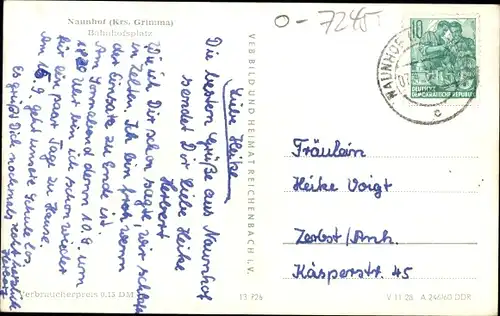 Naunhof (Krs. Grimma)
Bahnhofsplatz
O-7245
10
DEUTSCHE
DEMOKRATISCHE REPUBLIK
NAUNHOF
c
Liebe Heike
Die besten Grüße aus Naunhof
sendet Dir liebe Heike
Herbert
Wie ich Dir schon sagte, wir schlafen
in Zelten. Ich bin froh wenn
der Einsatz zu Ende ist.
Am Sonnabend dem 10.9. um
Uhr bin ich schon wieder
für ein paar Tage zu Hause
Am 15.9. geht unsere Schule los
Es grüßt Dich nochmals recht herzlich
Herbert
VEB BILD UND HEIMAT REICHENBACH I. V.
Fräulein
Heike Voigt
Zerbst/Anh.
Käsperstr. 45
Verbraucherpreis 0,15 DM
13 726
V 11 28 A 240/60 DDR